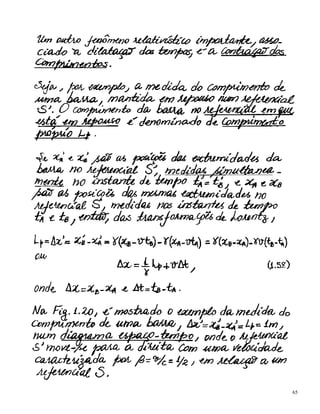 Um outro fenômeno relativístico importante, asso-
ciado a dilatação dos tempos, é a contração dos
comprimentos.
Seja, por exemplo, a medida do comprimento de
uma barra, mantida em repouso num referencial
S'. O comprimento da barra no referencial em que
está em repouso é denominado de comprimento
próprio Lp.
Se x'A e x'B são as posições das extremidades da
barra no referencial S', medidas simultanea-
mente no instante de tempo t'A = t'B, e xA e xB
são as posições das mesmas extremidades no
referencial S, medidas nos instantes de tempo
tA e tB, então, das transformações de Lorentz,
Lp = Δx' = x'B - x'A = γ(xB - vtB) - γ(xA - vtA) = γ(xB - xA) - γv(tB - tA)
ou
Δx = 1/γ Lp + vΔt, (1.58)
onde Δx = xB - xA e Δt = tB - tA.
Na Fig. 1.20, é mostrado o exemplo da medida do
comprimento de uma barra, Δx' = x'B - x'A = Lp = 1m,
num diagrama espaço-tempo, onde o referencial
S' move-se para a direita com uma velocidade
caracterizada por β = v/c = 1/2, em relação a um
referencial S.
65